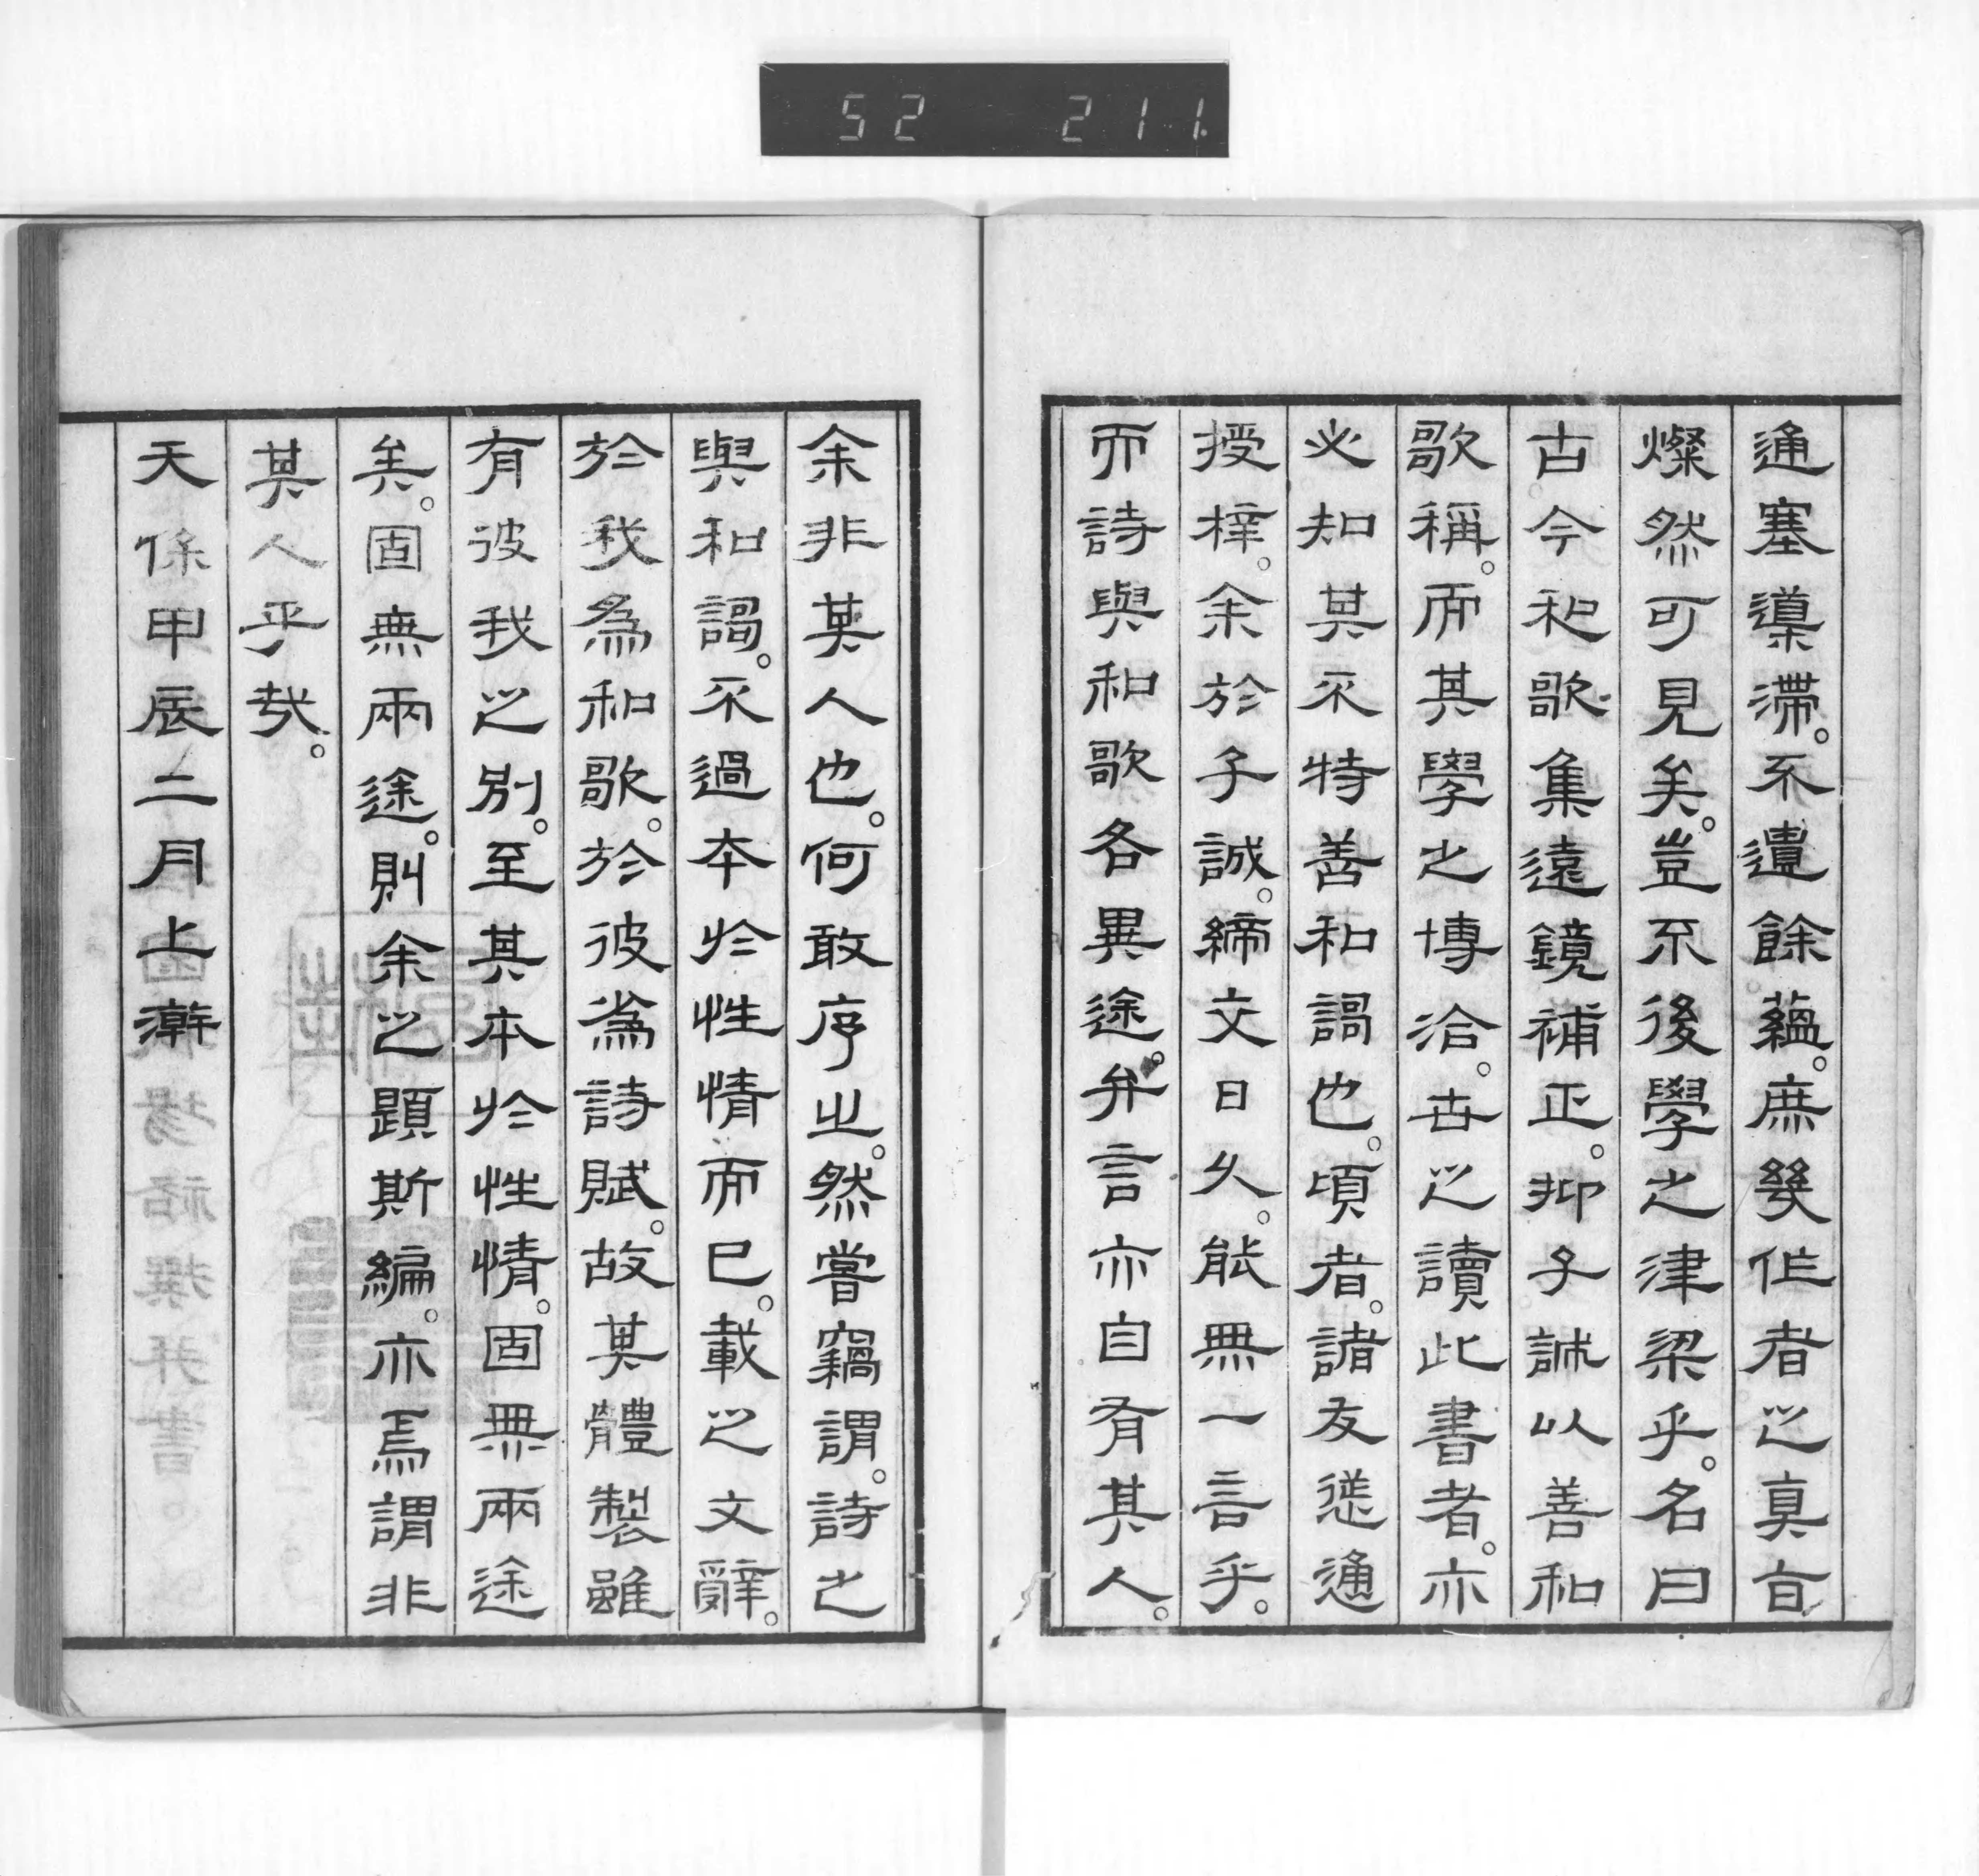 52 211
通塞導滯。不遺餘蘊。庶幾作者之真旨
燦然可見矣。豈不後學之津梁乎。名曰
古今和歌集遠鏡補正。抑子誠以善和
歌稱。而其學之博洽。世之讀此書者。亦
必知其不特善和謌也。頃者。諸友慫通
授梓。余於子誠。締文日久。能無一言乎。
而詩與和歌各異途。弁言亦自有其人。
余非其人也。何敢序之。然嘗竊謂。詩之
與和謌。不過本於性情而已。載之文辭。
於我為和歌。於彼為詩賦。故其體製雖
有彼我之別。至其本於性情。固無兩途
矣。固無兩途。則余之題斯編。亦焉謂非
其人乎哉。
天保甲辰二月上澣